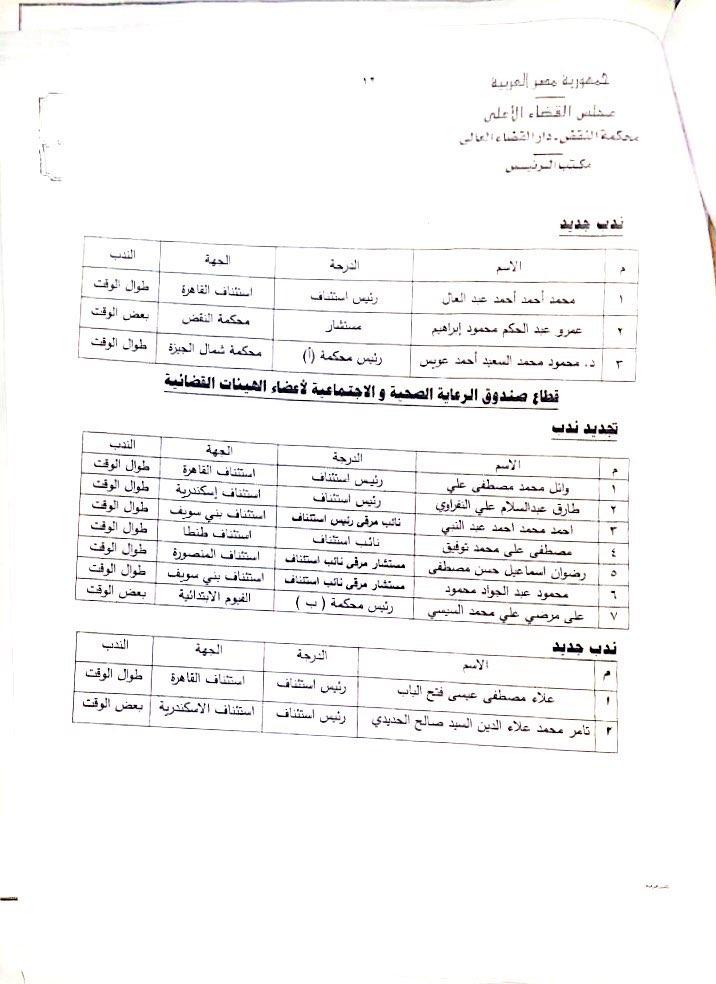 جمهورية مصر العربية
١٢
مجلس القضاء الأعلى
محكمة النقض - دار القضاء العالى
مكتب الرئيس
ندب جديد
م الاسم الدرجة الجهة الندب
١ محمد أحمد أحمد عبد العال رئيس استئناف استئناف القاهرة طوال الوقت
٢ عمرو عبد الحكم محمود إبراهيم مستشار محكمة النقض بعض الوقت
٣ د. محمود محمد السعيد أحمد عويس رئيس محكمة (أ) محكمة شمال الجيزة طوال الوقت
قطاع صندوق الرعاية الصحية و الاجتماعية لأعضاء الهيئات القضائية
تجديد ندب
م الاسم الدرجة الجهة الندب
١ وائل محمد مصطفى علي رئيس استئناف استئناف القاهرة طوال الوقت
٢ طارق عبدالسلام علي النفراوي رئيس استئناف استئناف إسكندرية طوال الوقت
٣ احمد محمد احمد عبد النبي نائب مرقى رئيس استئناف استئناف بني سويف طوال الوقت
٤ مصطفى على محمد توفيق نائب استئناف استئناف طنطا طوال الوقت
٥ رضوان اسماعيل حسن مصطفى مستشار مرقى نائب استئناف استئناف المنصورة طوال الوقت
٦ محمود عبد الجواد محمود مستشار مرقى نائب استئناف استئناف بني سويف طوال الوقت
٧ على مرضي علي محمد السيسي رئيس محكمة ( ب ) الفيوم الابتدائية بعض الوقت
ندب جديد
م الاسم الدرجة الجهة الندب
١ علاء مصطفى عيسى فتح الباب رئيس استئناف استئناف القاهرة طوال الوقت
٢ تامر محمد علاء الدين السيد صالح الحديدي رئيس استئناف استئناف الاسكندرية بعض الوقت